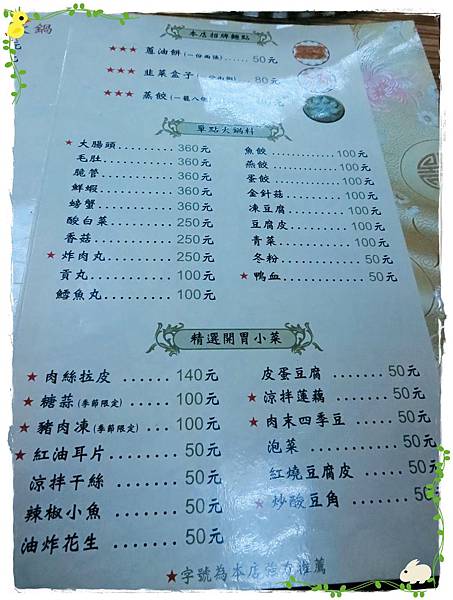 鍋
本店招牌麵點
★★★ 蔥油餅(一份兩張)...... 50元
★★★ 韭菜盒子 80元
★★★ 蒸餃
單點火鍋料
★大腸頭......... 360元
毛肚............ 360元
脆管............ 360元
鮮蝦............ 360元
螃蟹............ 360元
酸白菜......... 250元
香菇............ 250元
★炸肉丸......... 250元
貢丸............ 100元
鱈魚丸......... 100元
魚餃............ 100元
燕餃............ 100元
蛋餃............ 100元
金針菇......... 100元
凍豆腐......... 100元
豆腐皮......... 100元
青菜............ 100元
冬粉............ 50元
★鴨血............ 50元
精選開胃小菜
★肉絲拉皮 ...... 140元
★糖蒜(季節限定) ...... 100元
★豬肉凍(季節限定) ...... 100元
★紅油耳片......... 50元
涼拌干絲 ......... 50元
辣椒小魚 ......... 50元
油炸花生 ......... 50元
皮蛋豆腐 ......... 50元
★涼拌蓮藕......... 50元
★肉末四季豆 ...... 50元
泡菜 ............ 50元
紅燒豆腐皮 ...... 50元
★炒酸豆角 ...... 50
★字號為本店強力推薦